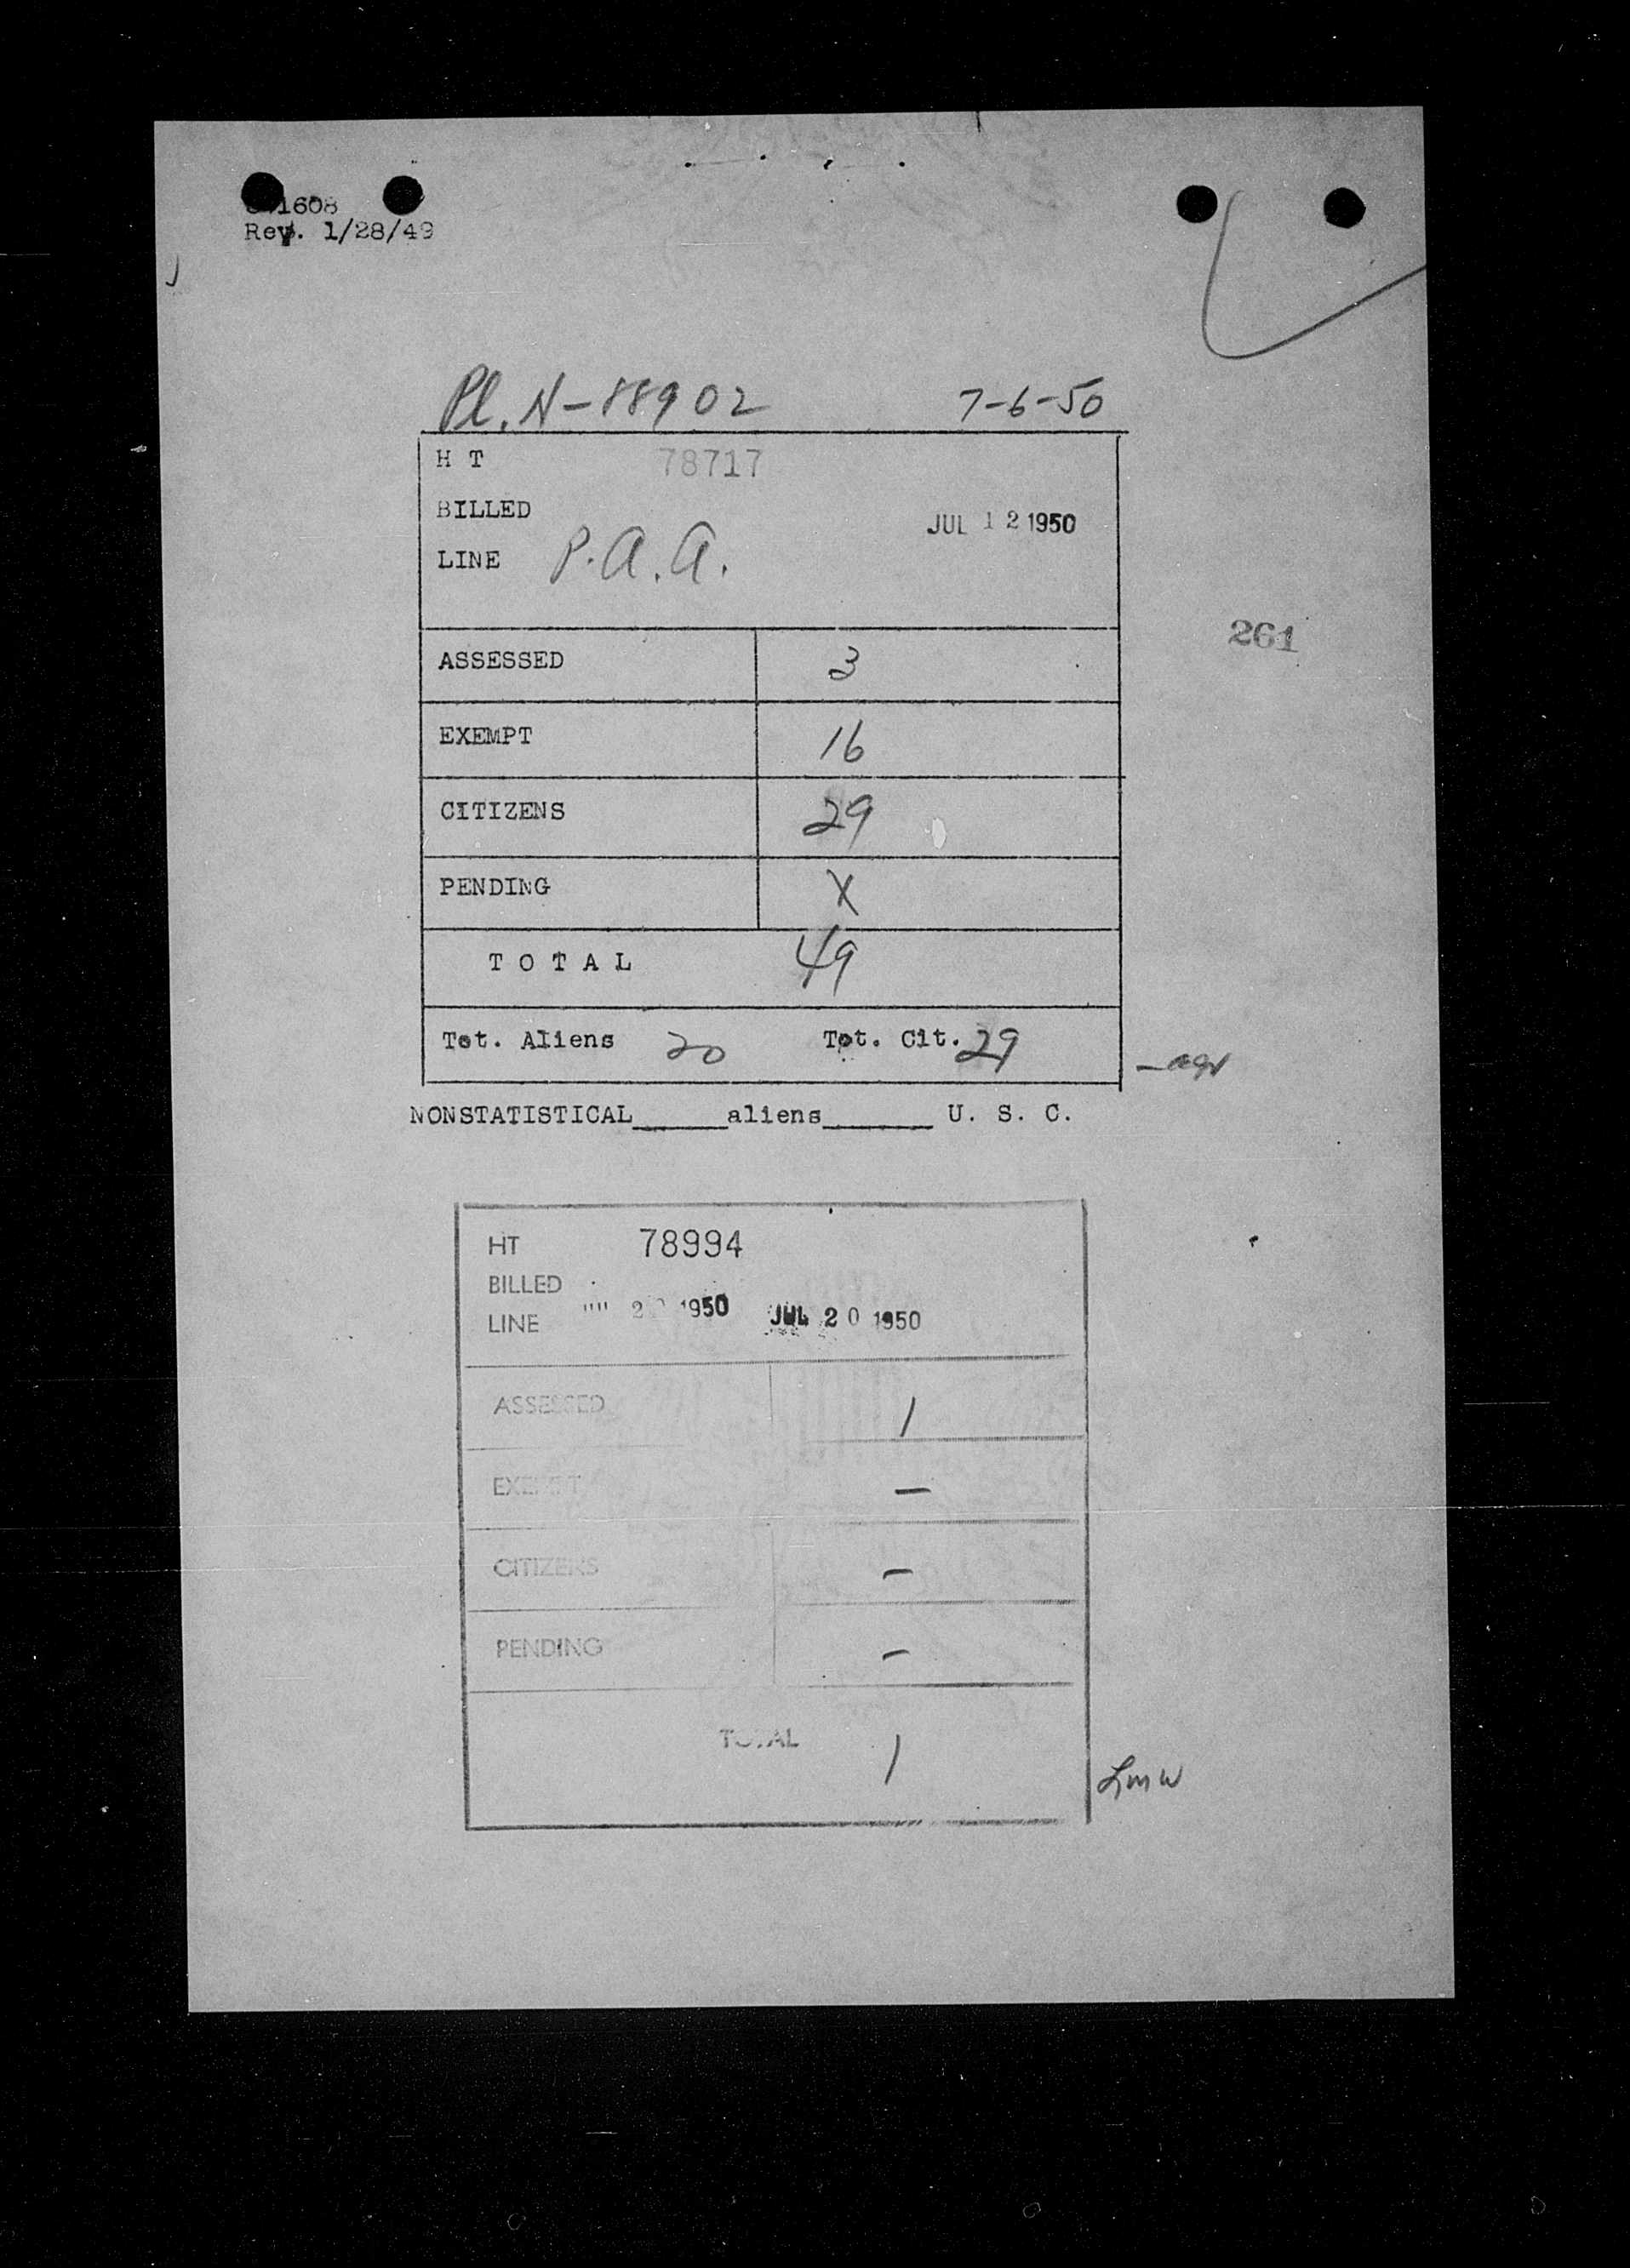 1608
Rev. 1/28/49
Pl. N-88902 7-6-50
H T 78717
BILLED
JUL 12 1950
LINE P.A.A.
261
ASSESSED 3
EXEMPT 16
CITIZENS 29
PENDING X
T O T A L 49
Tot. Aliens 20 Tot. Cit. 29
NONSTATISTICAL_____aliens______ U. S. C.
HT 78994
BILLED
LINE 1950 JUL 20 1950
ASSESSED 1
EXEMPT —
CITIZENS —
PENDING —
TOTAL 1
LMW